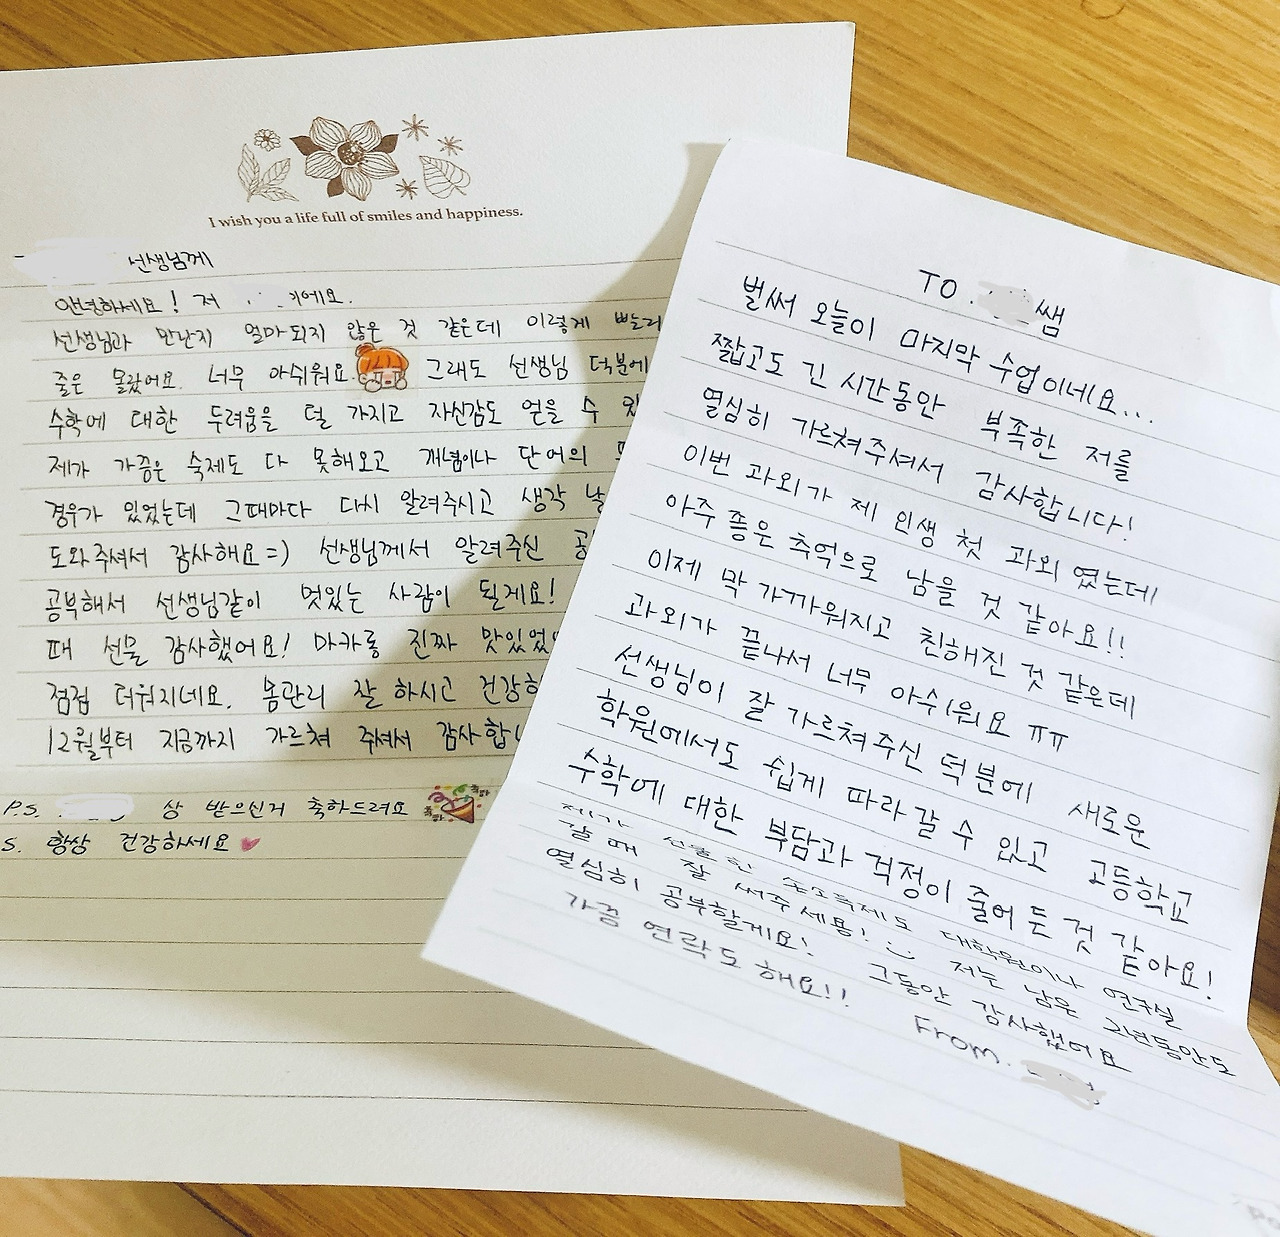 I wish you a life full of smiles and happiness.
선생님께
안녕하세요! 저 이에요.
선생님과 만난지 얼마되지 않은 것 같은데 이렇게 빠늘리
줄은 몰랐어요. 너무 아쉬워요. 그래도 선생님 덕분에
수학에 대한 두려움을 덜 가지고 자신감도 얻을 수
제가 가끔은 숙제도 다 못해오고 개념이나 단어의
경우가 있었는데 그때마다 다시 알려주시고 생각
도와주셔서 감사해요=) 선생님께서 알려주신
공부해서 선생님같이 멋있는 사람이 될게요!
때 선물 감사했어요! 마카롱 진짜
점점 더워지네요. 몸관리 잘 하시고
12월부터 지금까지 가르쳐 주셔서
P.S. 상 받으신거 축하드려요
축하 축하
S. 항상 건강하세요
TO. 쌤
벌써 오늘이 마지막 수업이네요...
짧고도 긴 시간동안 부족한 저를
열심히 가르쳐주셔서 감사합니다!
이번 과외가 제 인생 첫 과외 였는데
아주 좋은 추억으로 남을 것 같아요!!
이제 막 가까워지고 친해진 것 같은데
과외가 끝나서 너무 아쉬워요 ㅠㅠ
선생님이 잘 가르쳐주신 덕분에 새로운
학원에서도 쉽게 따라갈 수 있고 고등학교
수학에 대한 부담과 걱정이 줄어 든 것 같아요!
제가 선물한 손소독제도 대학원이나 연구실
갈 때 잘 써주세용! 저는 남은 2년동안도
열심히 공부할게요! 그동안 감사했어요
가끔 연락도 해요!!
From.